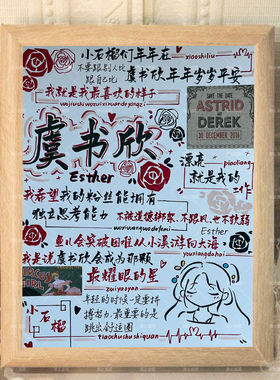 小石榴们年年在
xiaoshiliu
不要跟别人比
跟自己比
虞书欣年年岁岁平安
我就是我最喜欢的样子
wojiushiwozuixihuandeyangzi
SAVE THE DATE
ASTRID
&
DEREK
30 DECEMBER 2016
虞书欣
Esther
漂亮
piaoliang
就是我的
工作
我希望我的粉丝能拥有
独立思考能力
不被道德绑架、不跟风、也不软弱
Esther
总会突破困难从小溪游向大海
youxiangdahai
我是说虞书欣会成为那颗
最耀眼的星
zuiyaoyan
GIRL
年轻的时候一定要拼
搏努力、最重要的是
跳出舒适圈
tiaochushushiquan
小石榴